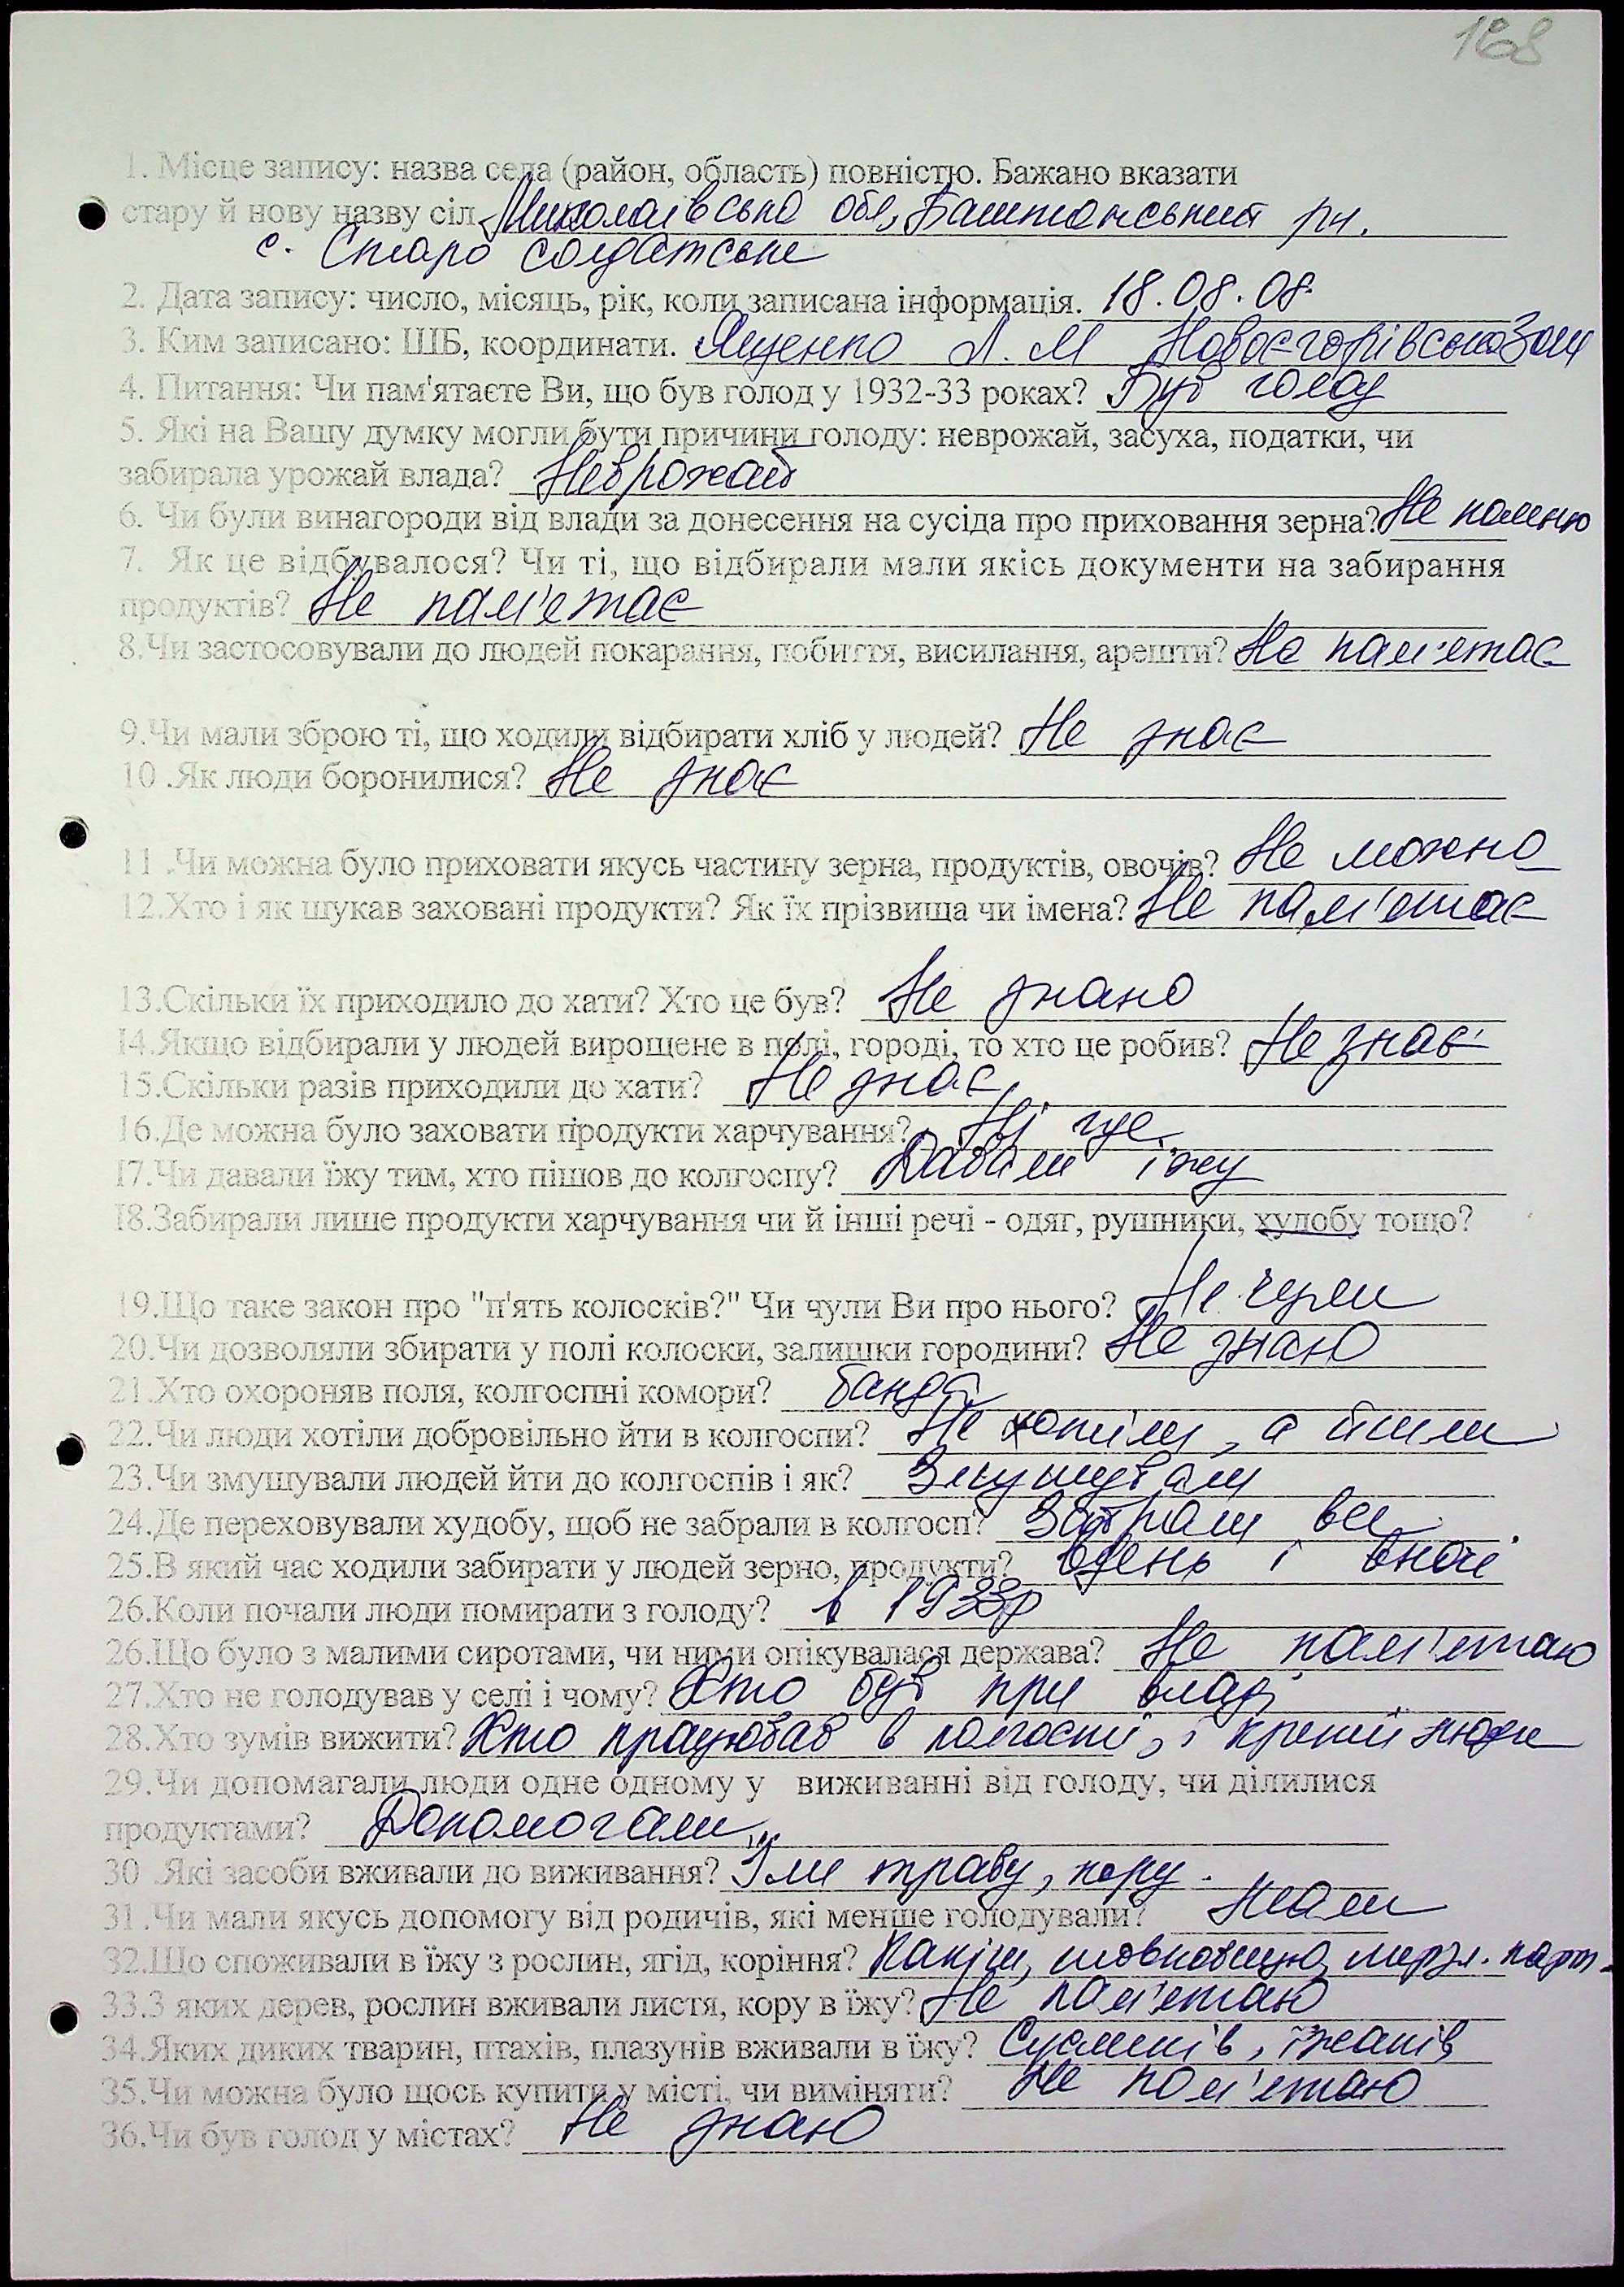 168
1. Місце запису: назва села (район, область) повністю. Бажано вказати
стару й нову назву сіл Миколаївська обл, Баштанський рн.
с. Старо солдатське
2. Дата запису: число, місяць, рік, коли записана інформація. 18.08.08.
3. Ким записано: ШБ, координати. Яценко Л. М Новоєгорівська Зош
4. Питання: Чи пам'ятаєте Ви, що був голод у 1932-33 роках? Був голод
5. Які на Вашу думку могли бути причини голоду: неврожай, засуха, податки, чи
забирала урожай влада? Неврожай
6. Чи були винагороди від влади за донесення на сусіда про приховання зерна? Не
7. Як це відбувалося? Чи ті, що відбирали мали якісь документи на забирання
продуктів? Не пам'етає
8.Чи застосовували до людей покарання, побиття, висилання, арешти? Не пам'етає
9.Чи мали зброю ті, що ходили відбирати хліб у людей? Не знає
10 .Як люди боронилися? Не знає
11 .Чи можна було приховати якусь частину зерна, продуктів, овочів? Не можно
12.Хто і як шукав заховані продукти? Як їх прізвища чи імена? Не пам'етає
13.Скільки їх приходило до хати? Хто це був? Не знано
14.Якщо відбирали у людей вирощене в полі, городі, то хто це робив? Не знає
15.Скільки разів приходили до хати? Не знає
16.Де можна було заховати продукти харчування? Ні где
17.Чи давали їжу тим, хто пішов до колгоспу? Давали їжу
18.Забирали лише продукти харчування чи й інші речі - одяг, рушники, худобу тощо?
19.Що таке закон про "п'ять колосків?" Чи чули Ви про нього? Не чули
20.Чи дозволяли збирати у полі колоски, залишки городини? Не знаю
21.Хто охороняв поля, колгоспні комори? банда
22.Чи люди хотіли добровільно йти в колгоспи? Не хотіли, а йшли
23.Чи змушували людей йти до колгоспів і як? Змушували
24.Де переховували худобу, щоб не забрали в колгосп? Забрали все
25.В який час ходили забирати у людей зерно, продукти? вдень і вночі
26.Коли почали люди помирати з голоду? в 1933р
26.Що було з малими сиротами, чи ними опікувалася держава? Не пам'етаю
27.Хто не голодував у селі і чому? Хто був при владі
28.Хто зумів вижити? Хто працював в колгоспі, і крепкі люди
29.Чи допомагали люди одне одному у виживанні від голоду, чи ділилися
продуктами? Допомогали
30 .Які засоби вживали до виживання? Їли траву, кору.
31.Чи мали якусь допомогу від родичів, які менше голодували? Мали
32.Що споживали в їжу з рослин, ягід, коріння? шовковицю, мерзл. карт.
33.З яких дерев, рослин вживали листя, кору в їжу? Не пам'етаю
34.Яких диких тварин, птахів, плазунів вживали в їжу? Сусликів, їжаків
35.Чи можна було щось купити у місті, чи виміняти? Не пам'етаю
36.Чи був голод у містах? Не знаю